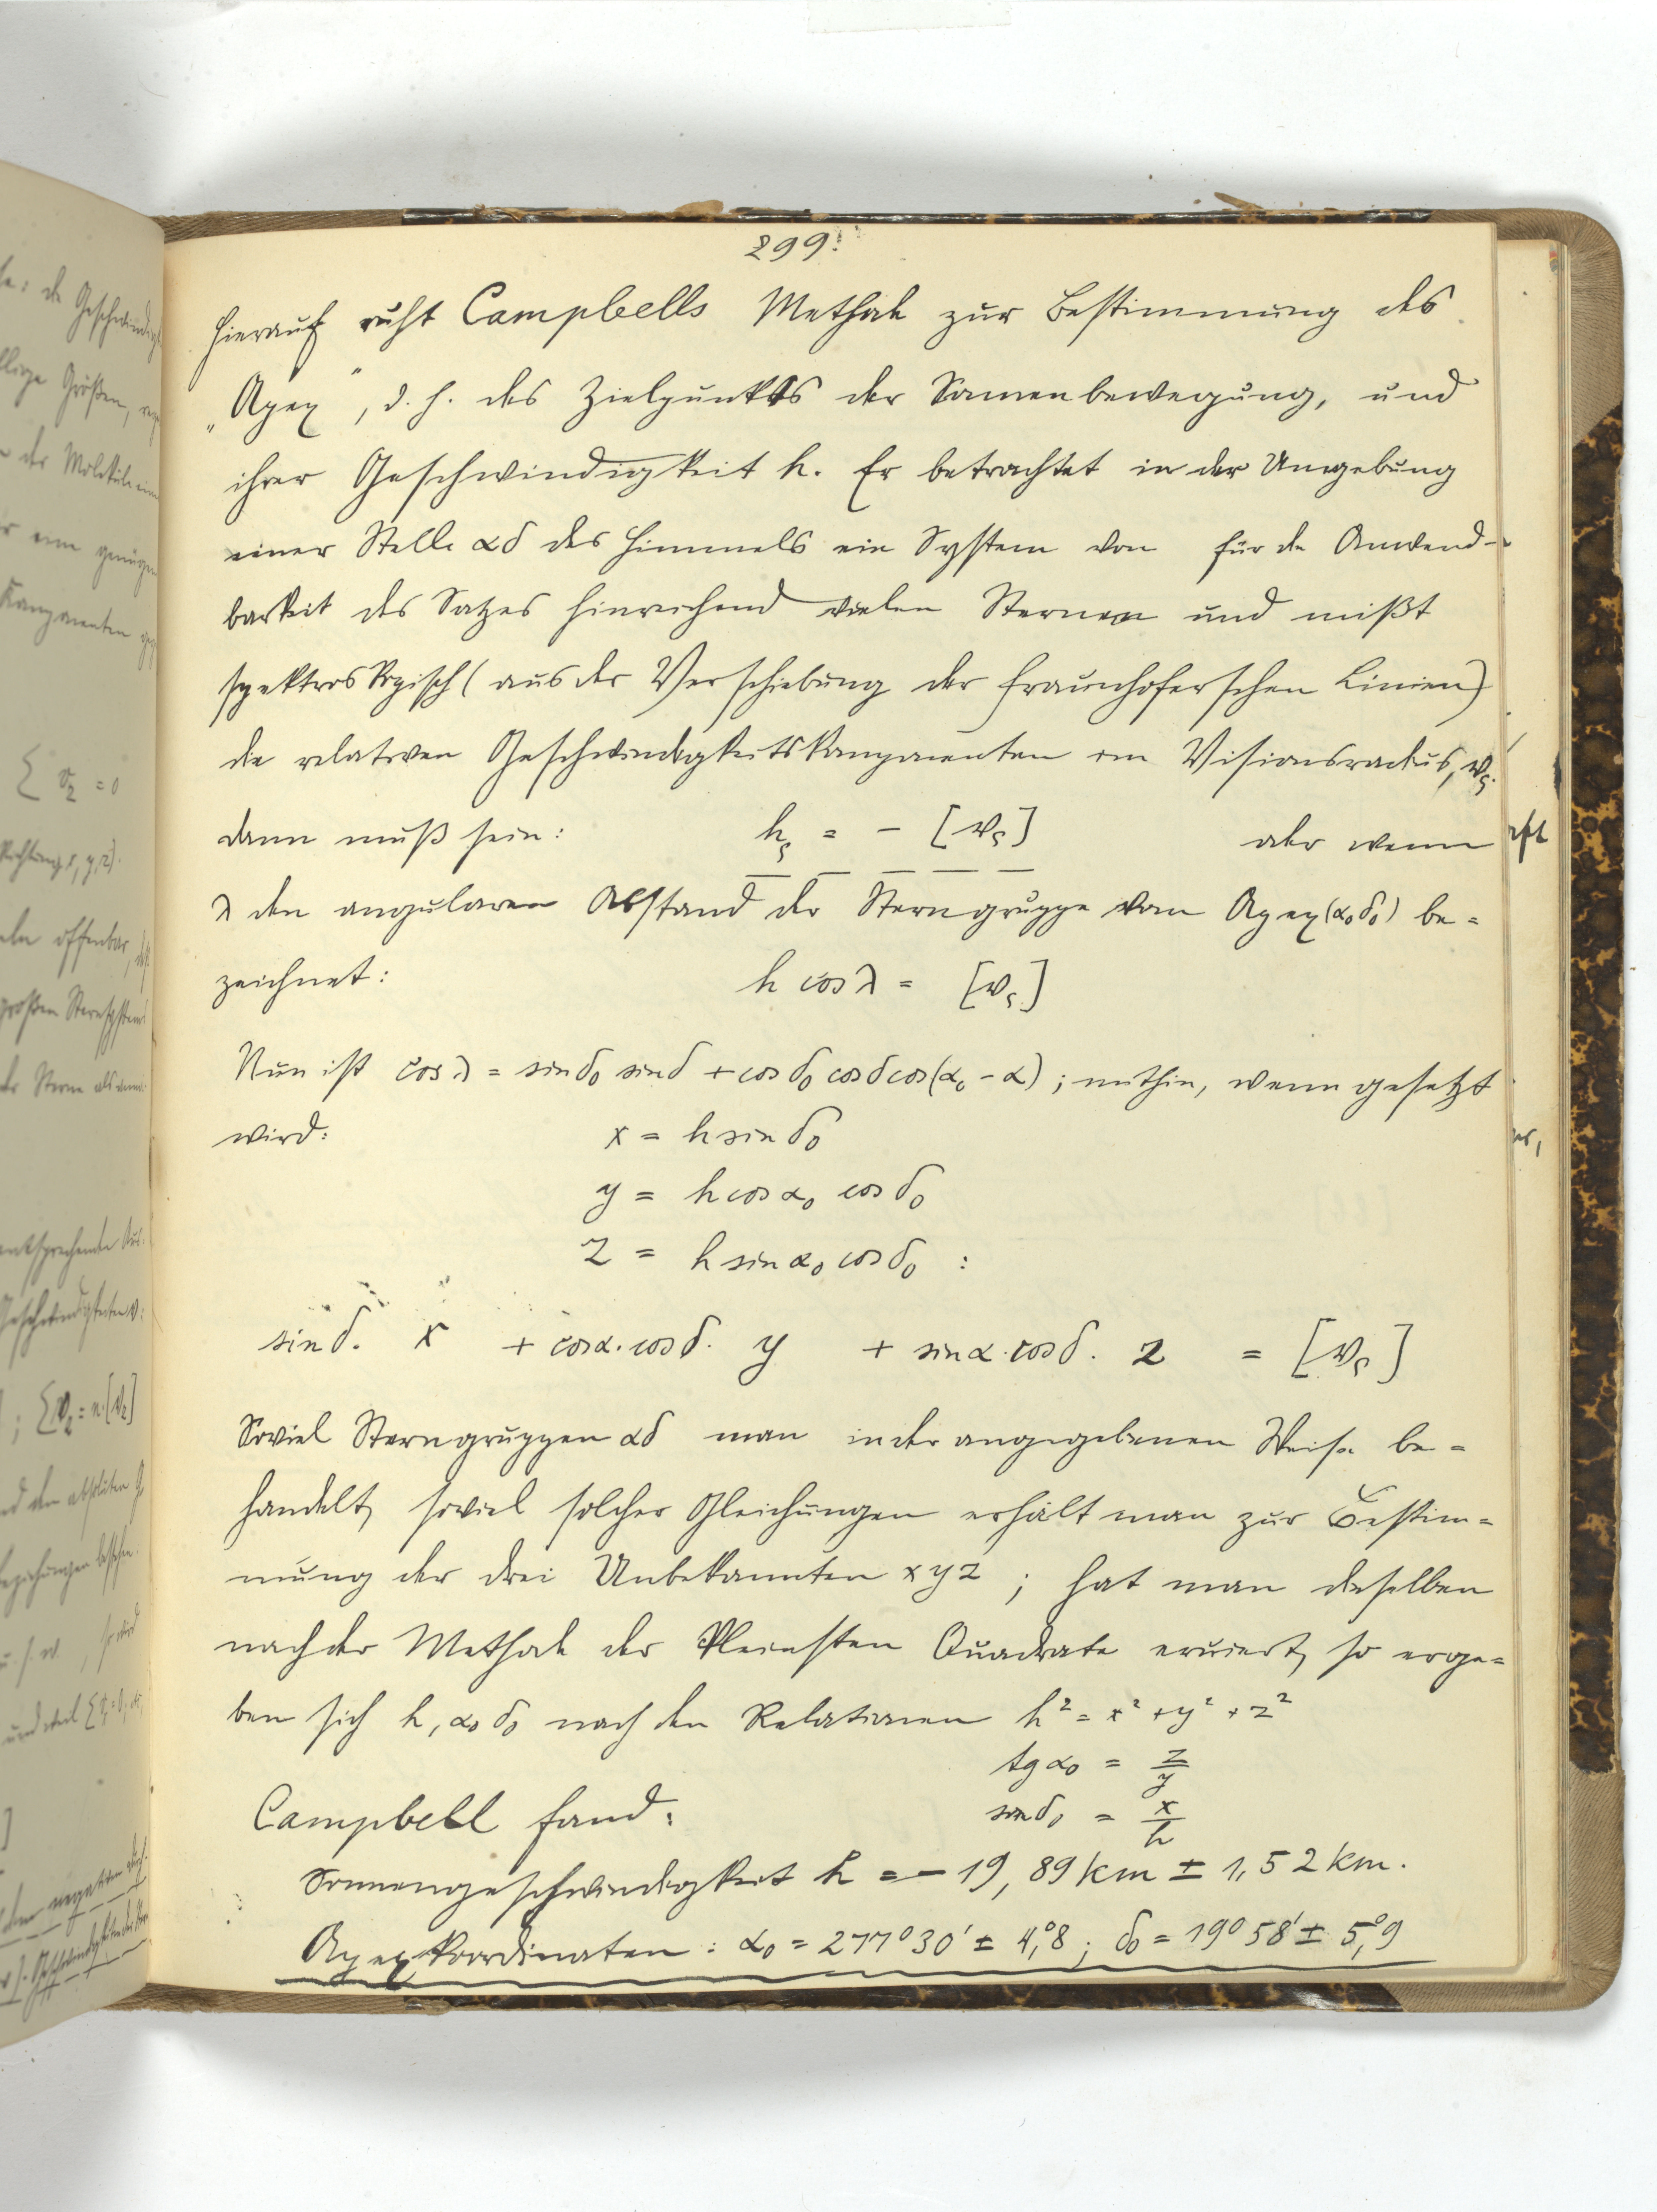 299.
Hierauf ruht Campbells Methode zur Bestimmung des
„Apex“, d. h. des Zielpunktes der Sonnenbewegung, und
ihrer Geschwindigkeit h. Er betrachtet in der Umgebung
einer Stelle αδ des Himmels ein System von für die Anwend-
barkeit des Satzes hinreichend vielen Sternen und mißt
spektroskopisch (aus der Verschiebung der Fraunhoferschen Linien)
die relativen Geschwindigkeitskomponenten im Visionsradius, vς.
dann muß sein: hς = - [vς] oder wenn
λ den angularen Abstand der Sterngruppe vom Apex (α₀δ₀) be=
zeichnet: h cos λ = [vς]
Nun ist cos λ = sin δ₀ sin δ + cos δ₀ cos δ cos (α₀ - α) ; mithin, wenn gesetzt
wird: x = h sin δ₀
y = h cos α₀ cos δ₀
z = h sin α₀ cos δ₀ :
sin δ. x + cos α. cos δ. y + sin α. cos δ. z = [vς]
Soviel Sterngruppen αδ man in der angegebenen Weise be=
handelt, soviel solcher Gleichungen erhält man zur Bestim=
mung der drei Unbekannten x y z ; hat man dieselben
nach der Methode der kleinsten Quadrate eruiert, so erge=
ben sich h, α₀ δ₀ nach den Relationen h² = x² + y² + z²
tg α₀ = z/y
sin δ₀ = x/h
Campbell fand:
Sonnengeschwindigkeit h = - 19,89 km ± 1,52 km.
Apexkoordinaten : α₀ = 277° 30′ ± 4,°8 ; δ₀ = 19° 58′ ± 5,°9